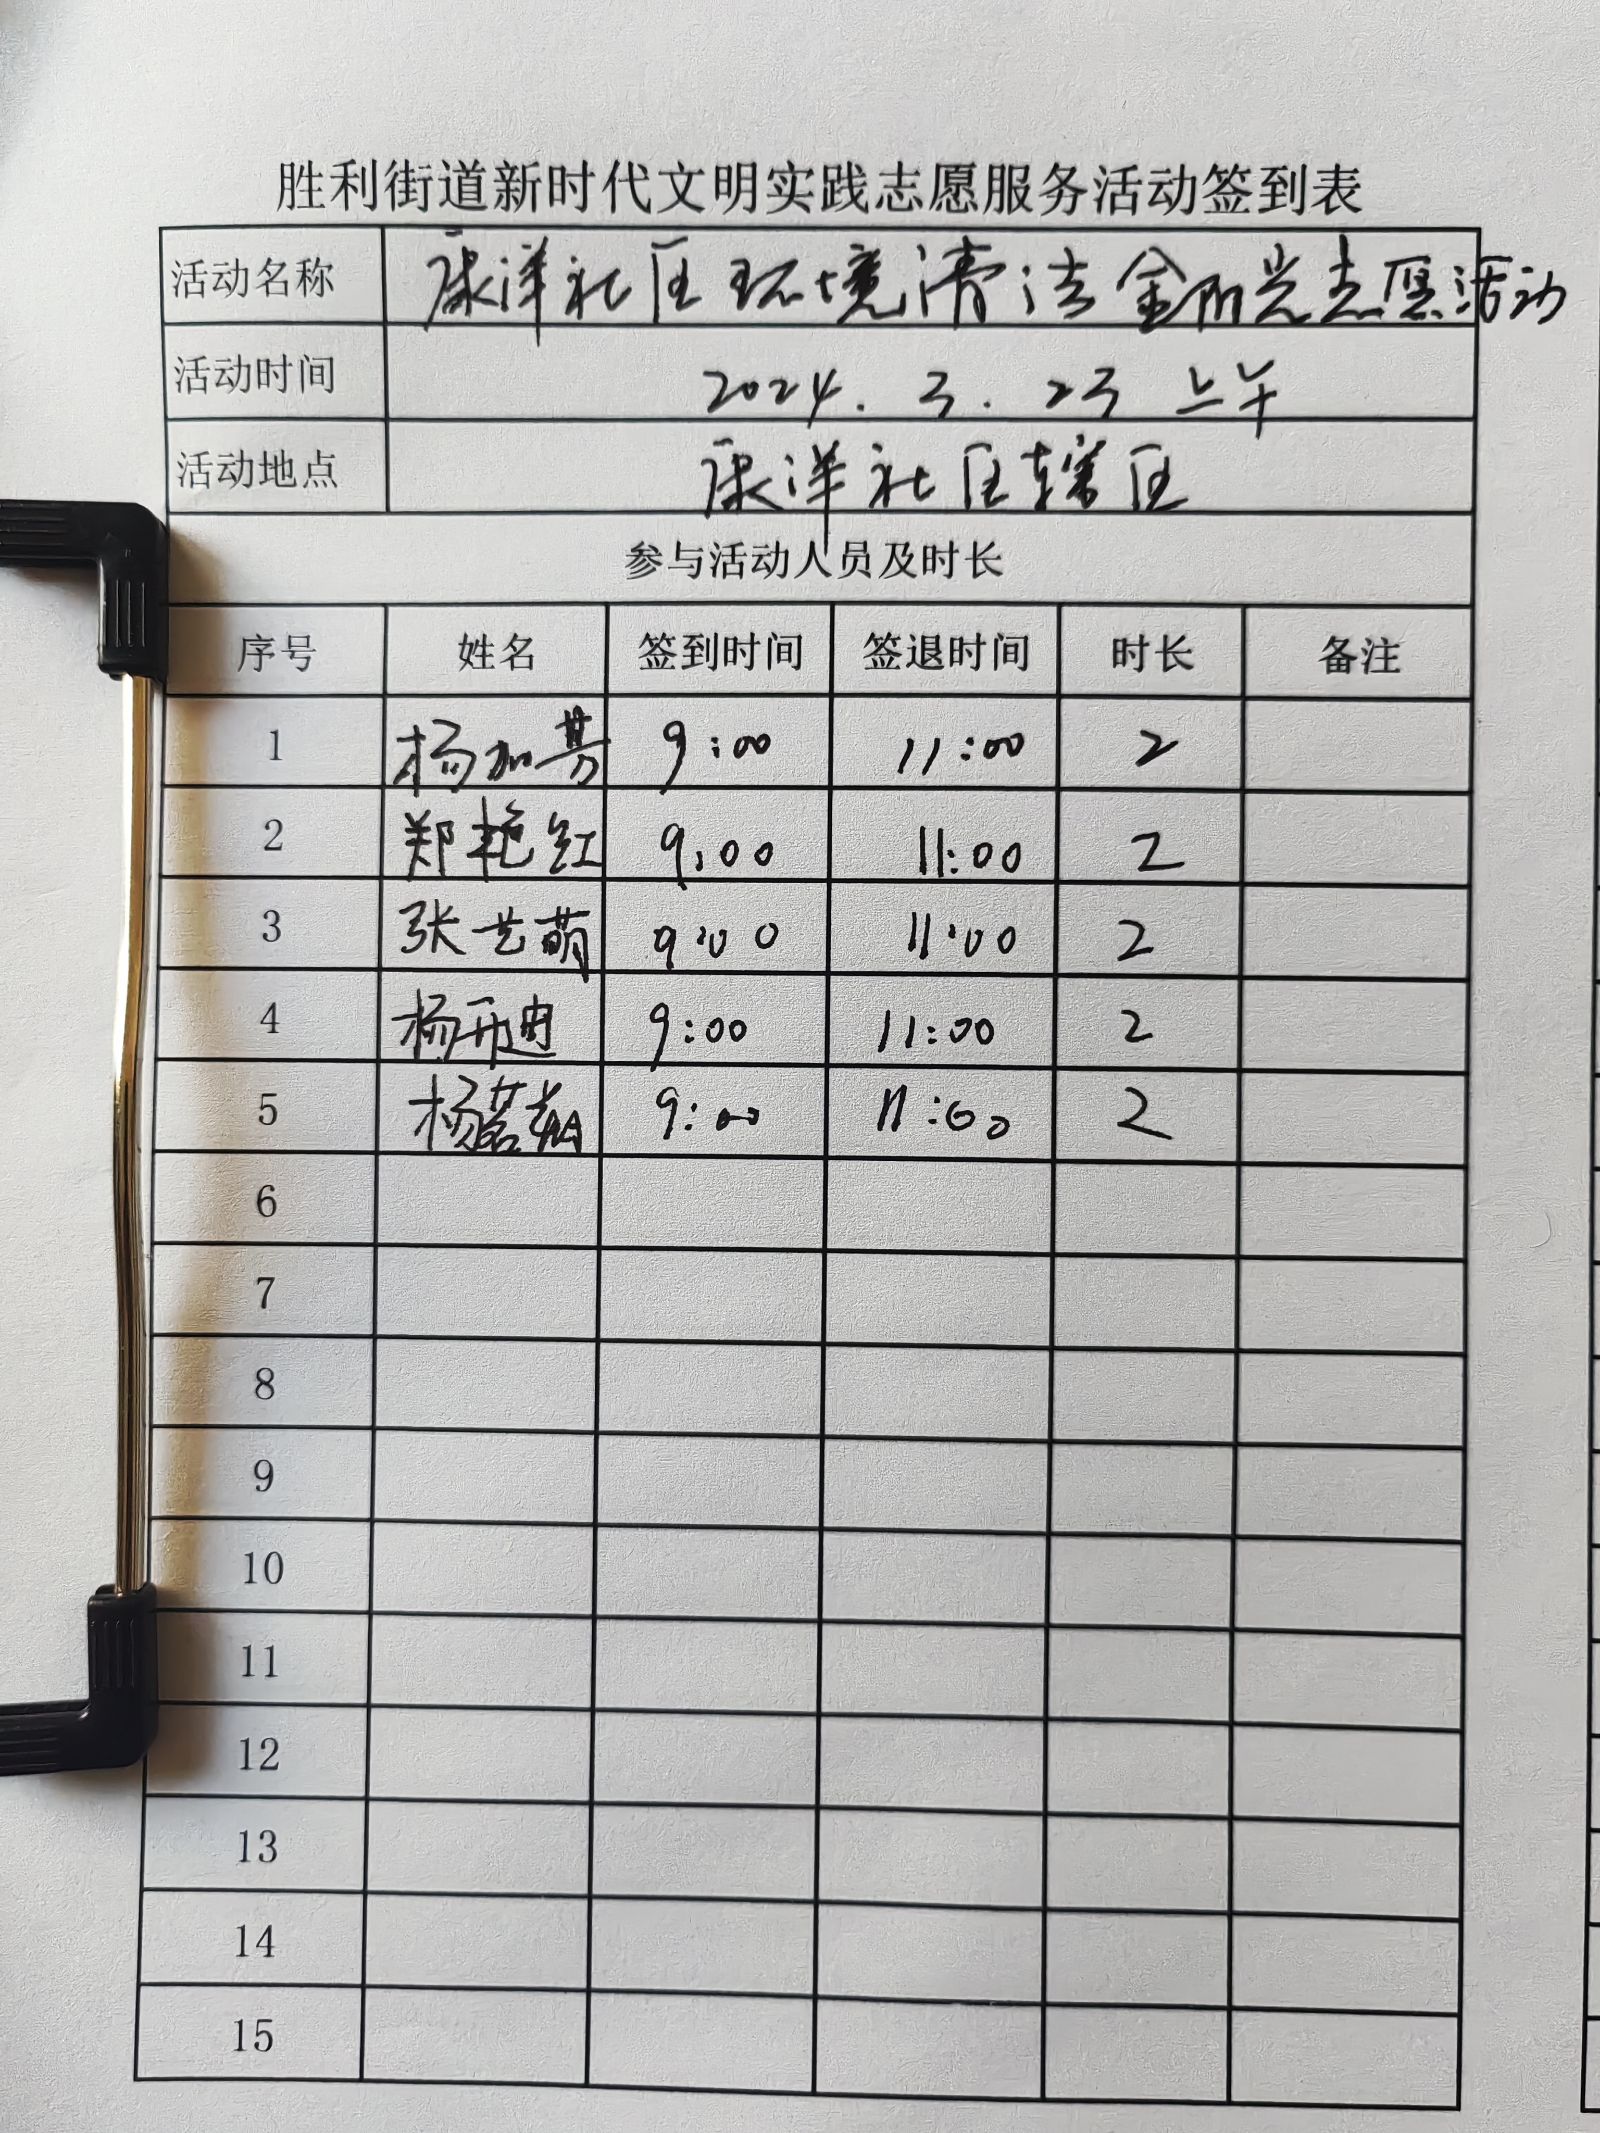 胜利街道新时代文明实践志愿服务活动签到表
活动名称 康洋社区环境清洁金阳光志愿活动
活动时间 2024.3.23 上午
活动地点 康洋社区辖区
参与活动人员及时长
序号 姓名 签到时间 签退时间 时长 备注
1 杨加 9:00 11:00 2
2 郑艳红 9:00 11:00 2
3 张艺萌 9:00 11:00 2
4 杨开迪 9:00 11:00 2
5 杨茗 9:00 11:00 2
6
7
8
9
10
11
12
13
14
15